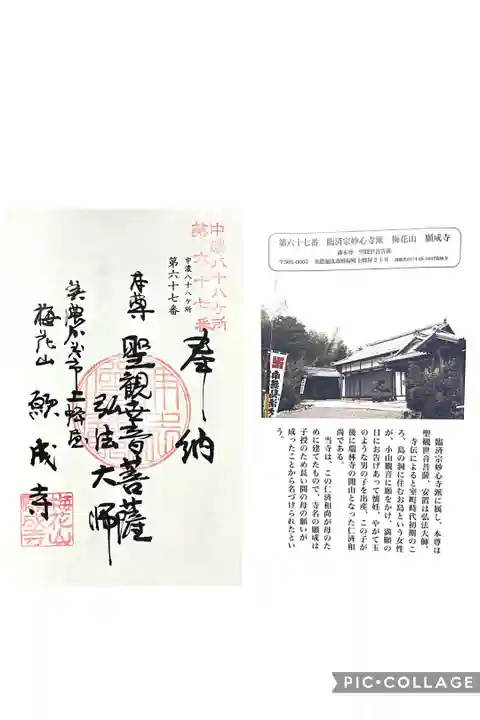 中濃八十八ケ所
第六十七番
中濃八十八ケ所
第六十七番
奉納
本尊 聖観世音菩薩
弘法大師
美濃加茂市上蜂屋
梅花山 願成寺
梅花山
願成寺
第六十七番 臨済宗妙心寺派 梅花山 願成寺
御本尊 聖観世音菩薩
臨済宗妙心寺派に属し、本尊は
聖観世音菩薩、安置は弘法大師。
寺伝によると室町時代初期のこ
ろ、島の洞に住むお島という女性
が、小山観音に願をかけ、満願の
日にお告げあって懐妊、やがて玉
のような男の子を出産、この子が
後に瑞林寺の開山となった仁済和
尚である。
当寺は、この仁済和尚が母のた
めに建てたもので、寺名の願成は
子授のため長い間の母の願いが
成ったことから名づけられたとい
う。
PIC•COLLAGE